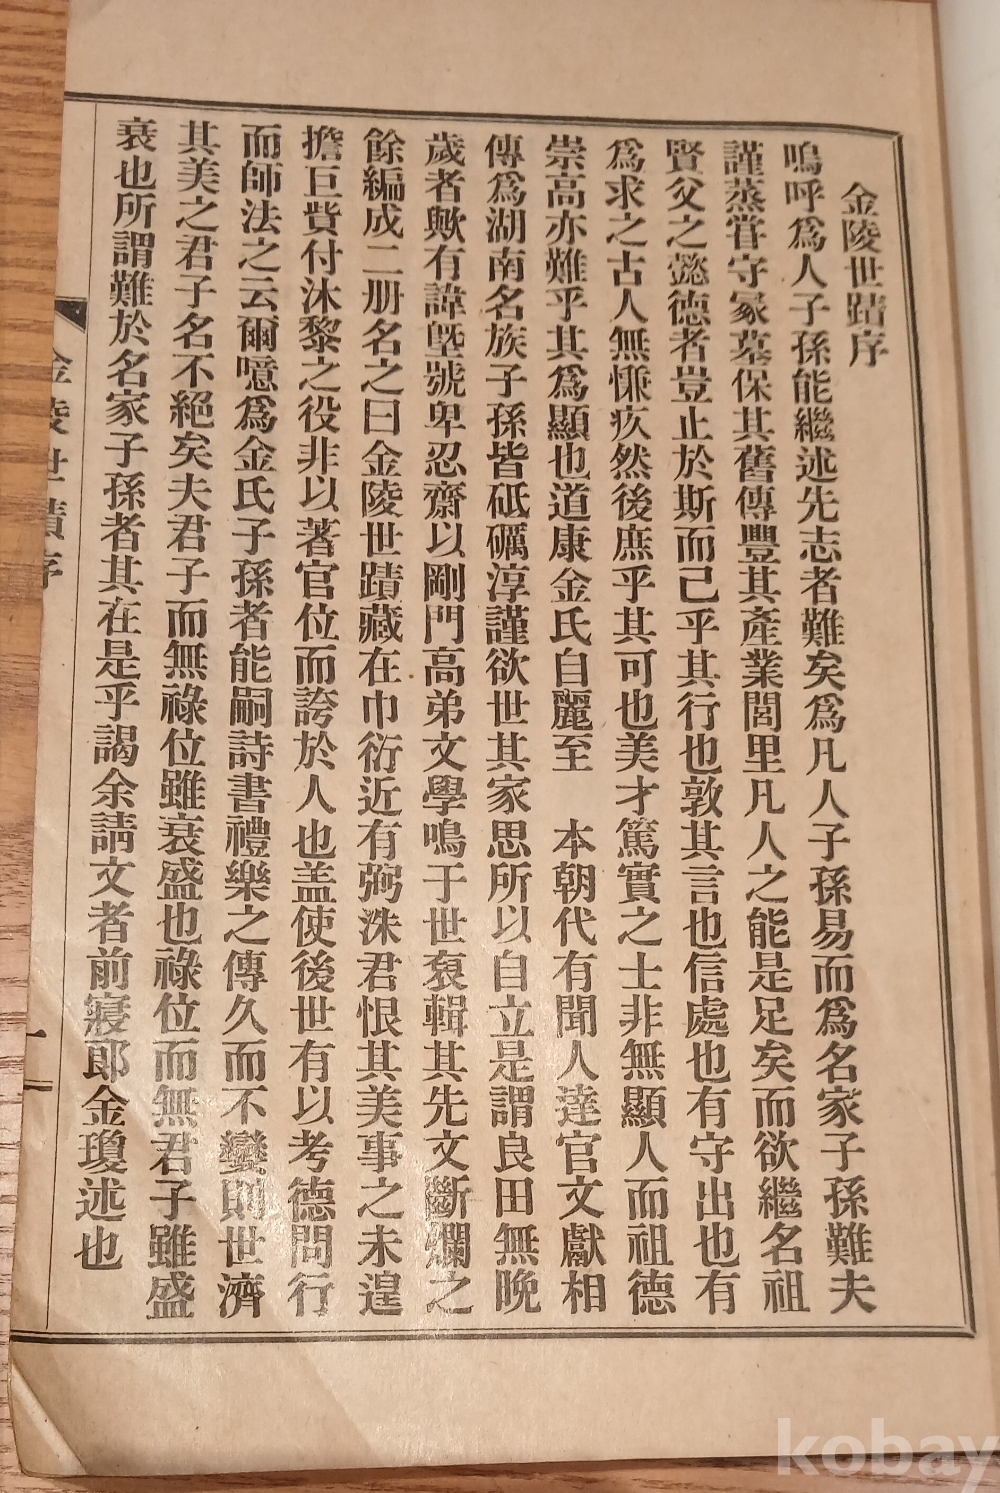 金陵世蹟序
嗚呼爲人子孫能繼述先志者難矣爲凡人子孫易而爲名家子孫難夫
謹蒸甞守冢墓保其舊傳豐其產業閭里凡人之能是足矣而欲繼名祖
賢父之懿德者豈止於斯而已乎其行也敦其言也信處也有守出也有
爲求之古人無慊疚然後庶乎其可也美才篤實之士非無顯人而祖德
崇高亦難乎其爲顯也道康金氏自麗至 本朝代有聞人達官文獻相
傳爲湖南名族子孫皆砥礪淳謹欲世其家思所以自立是謂良田無晩
歲者歟有諱墍號卑忍齋以剛門高弟文學鳴于世裒輯其先文斷爛之
餘編成二册名之曰金陵世蹟藏在巾衍近有弼洙君恨其美事之未遑
擔巨貲付沐黎之役非以著官位而誇於人也盖使後世有以考德問行
而師法之云爾噫爲金氏子孫者能嗣詩書禮樂之傳久而不變則世濟
其美之君子名不絕矣夫君子而無祿位雖衰盛也祿位而無君子雖盛
衰也所謂難於名家子孫者其在是乎謁余請文者前寢郎金瓊述也
金陵世蹟序
一
kobay